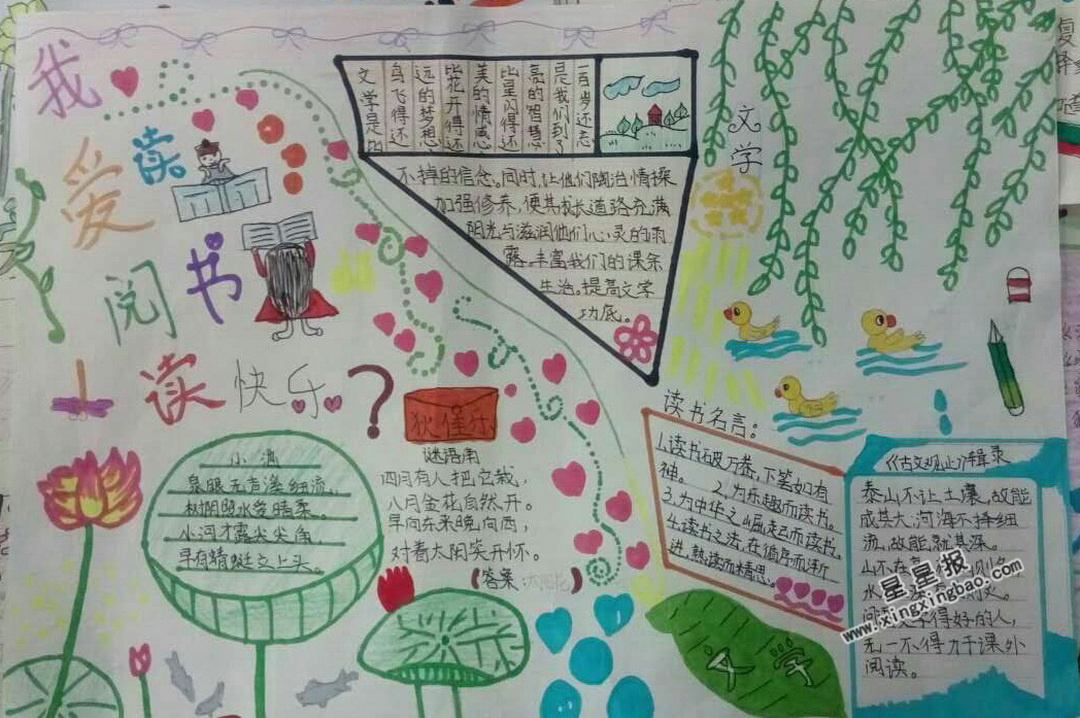 我
爱读
阅书
读快乐?
文学是比
鸟飞得还
远的梦想
比花开得还
美的情感
比星闪得还
亮的智慧
是我们到了
一百岁还忘
不掉的信念。同时,让他们陶冶情操
加强修养,使其成长道路充满
阳光与滋润他们心灵的雨
露。丰富我们的课余
生活。提高文学
功底。
文学
狄佳乐
小池
泉眼无声惜细流,
树阴照水爱晴柔。
小河才露尖尖角
早有蜻蜓立上头。
谜语角
四月有人把它栽,
八月金花自然开。
早向东来晚向西,
对着太阳笑开怀。
(答案:
读书名言:
1.读书破万卷,下笔如有
神。 2.为乐趣而读书。
3.为中华之崛起而读书。
4.读书之法,在循序而渐
进,熟读而精思。
文学
《古文观止》辑录
泰山不让土壤,故能
成其大,河海不择细
流,故能就其深。
山不在高
水
得好的人,
无一不得力于课外
阅读。
星星报
www.xingxingbao.com